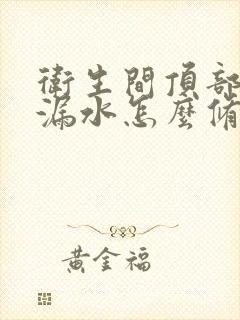 衛生間頂部
漏水怎麼修
黃金福